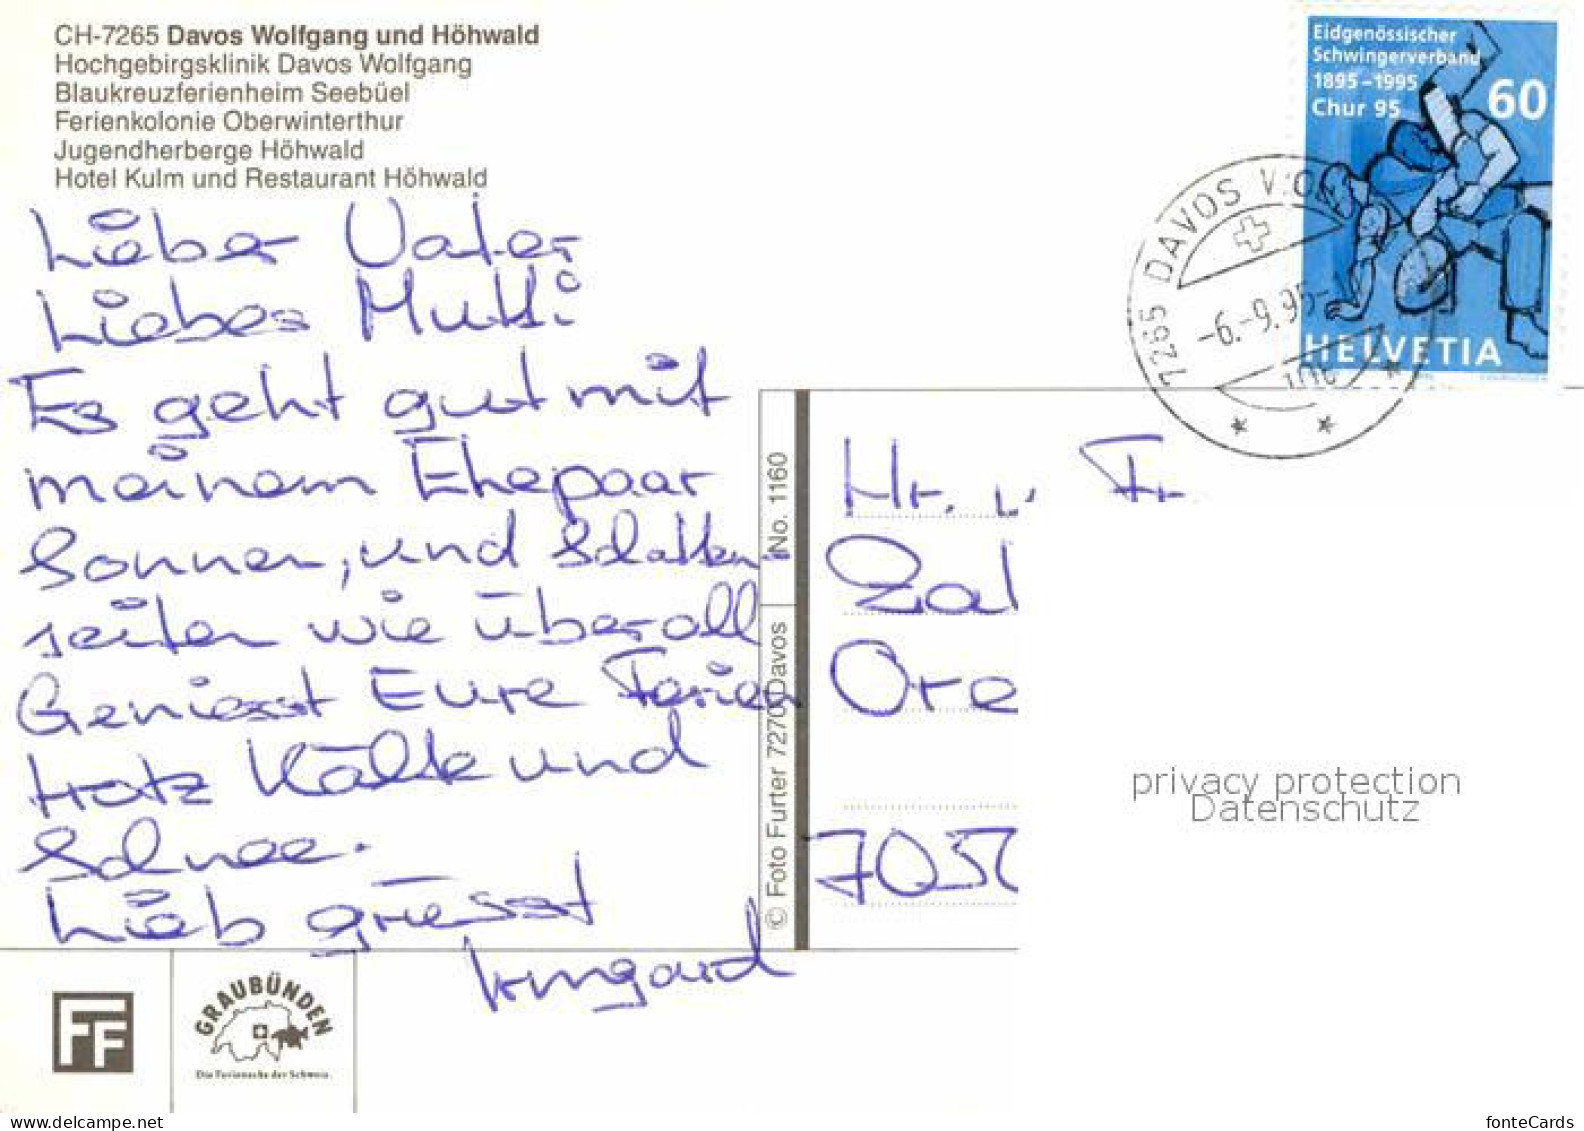 CH-7265 Davos Wolfgang und Höhwald
Hochgebirgsklinik Davos Wolfgang
Blaukreuzferienheim Seebüel
Ferienkolonie Oberwinterthur
Jugendherberge Höhwald
Hotel Kulm und Restaurant Höhwald
Eidgenössischer
Schwingerverband
1895-1995
Chur 95
60
HELVETIA
7265 DAVOS WO
-6.-9.95-
Lieber Vater
Liebes Mutti
Es geht gut mit
meinem Ehepaar
Sonnen, und Schatten
seiten wie überall
Geniesst Eure Ferien
trotz Kälte und
Schnee.
Lieb grüsst
Irmgard
No. 1160
© Foto Furter 7270 Davos
Hr. u Fr
Zal
Ore
7050
privacy protection
Datenschutz
FF
GRAUBÜNDEN
Die Ferienecke der Schweiz.
www.delcampe.net
fonteCards